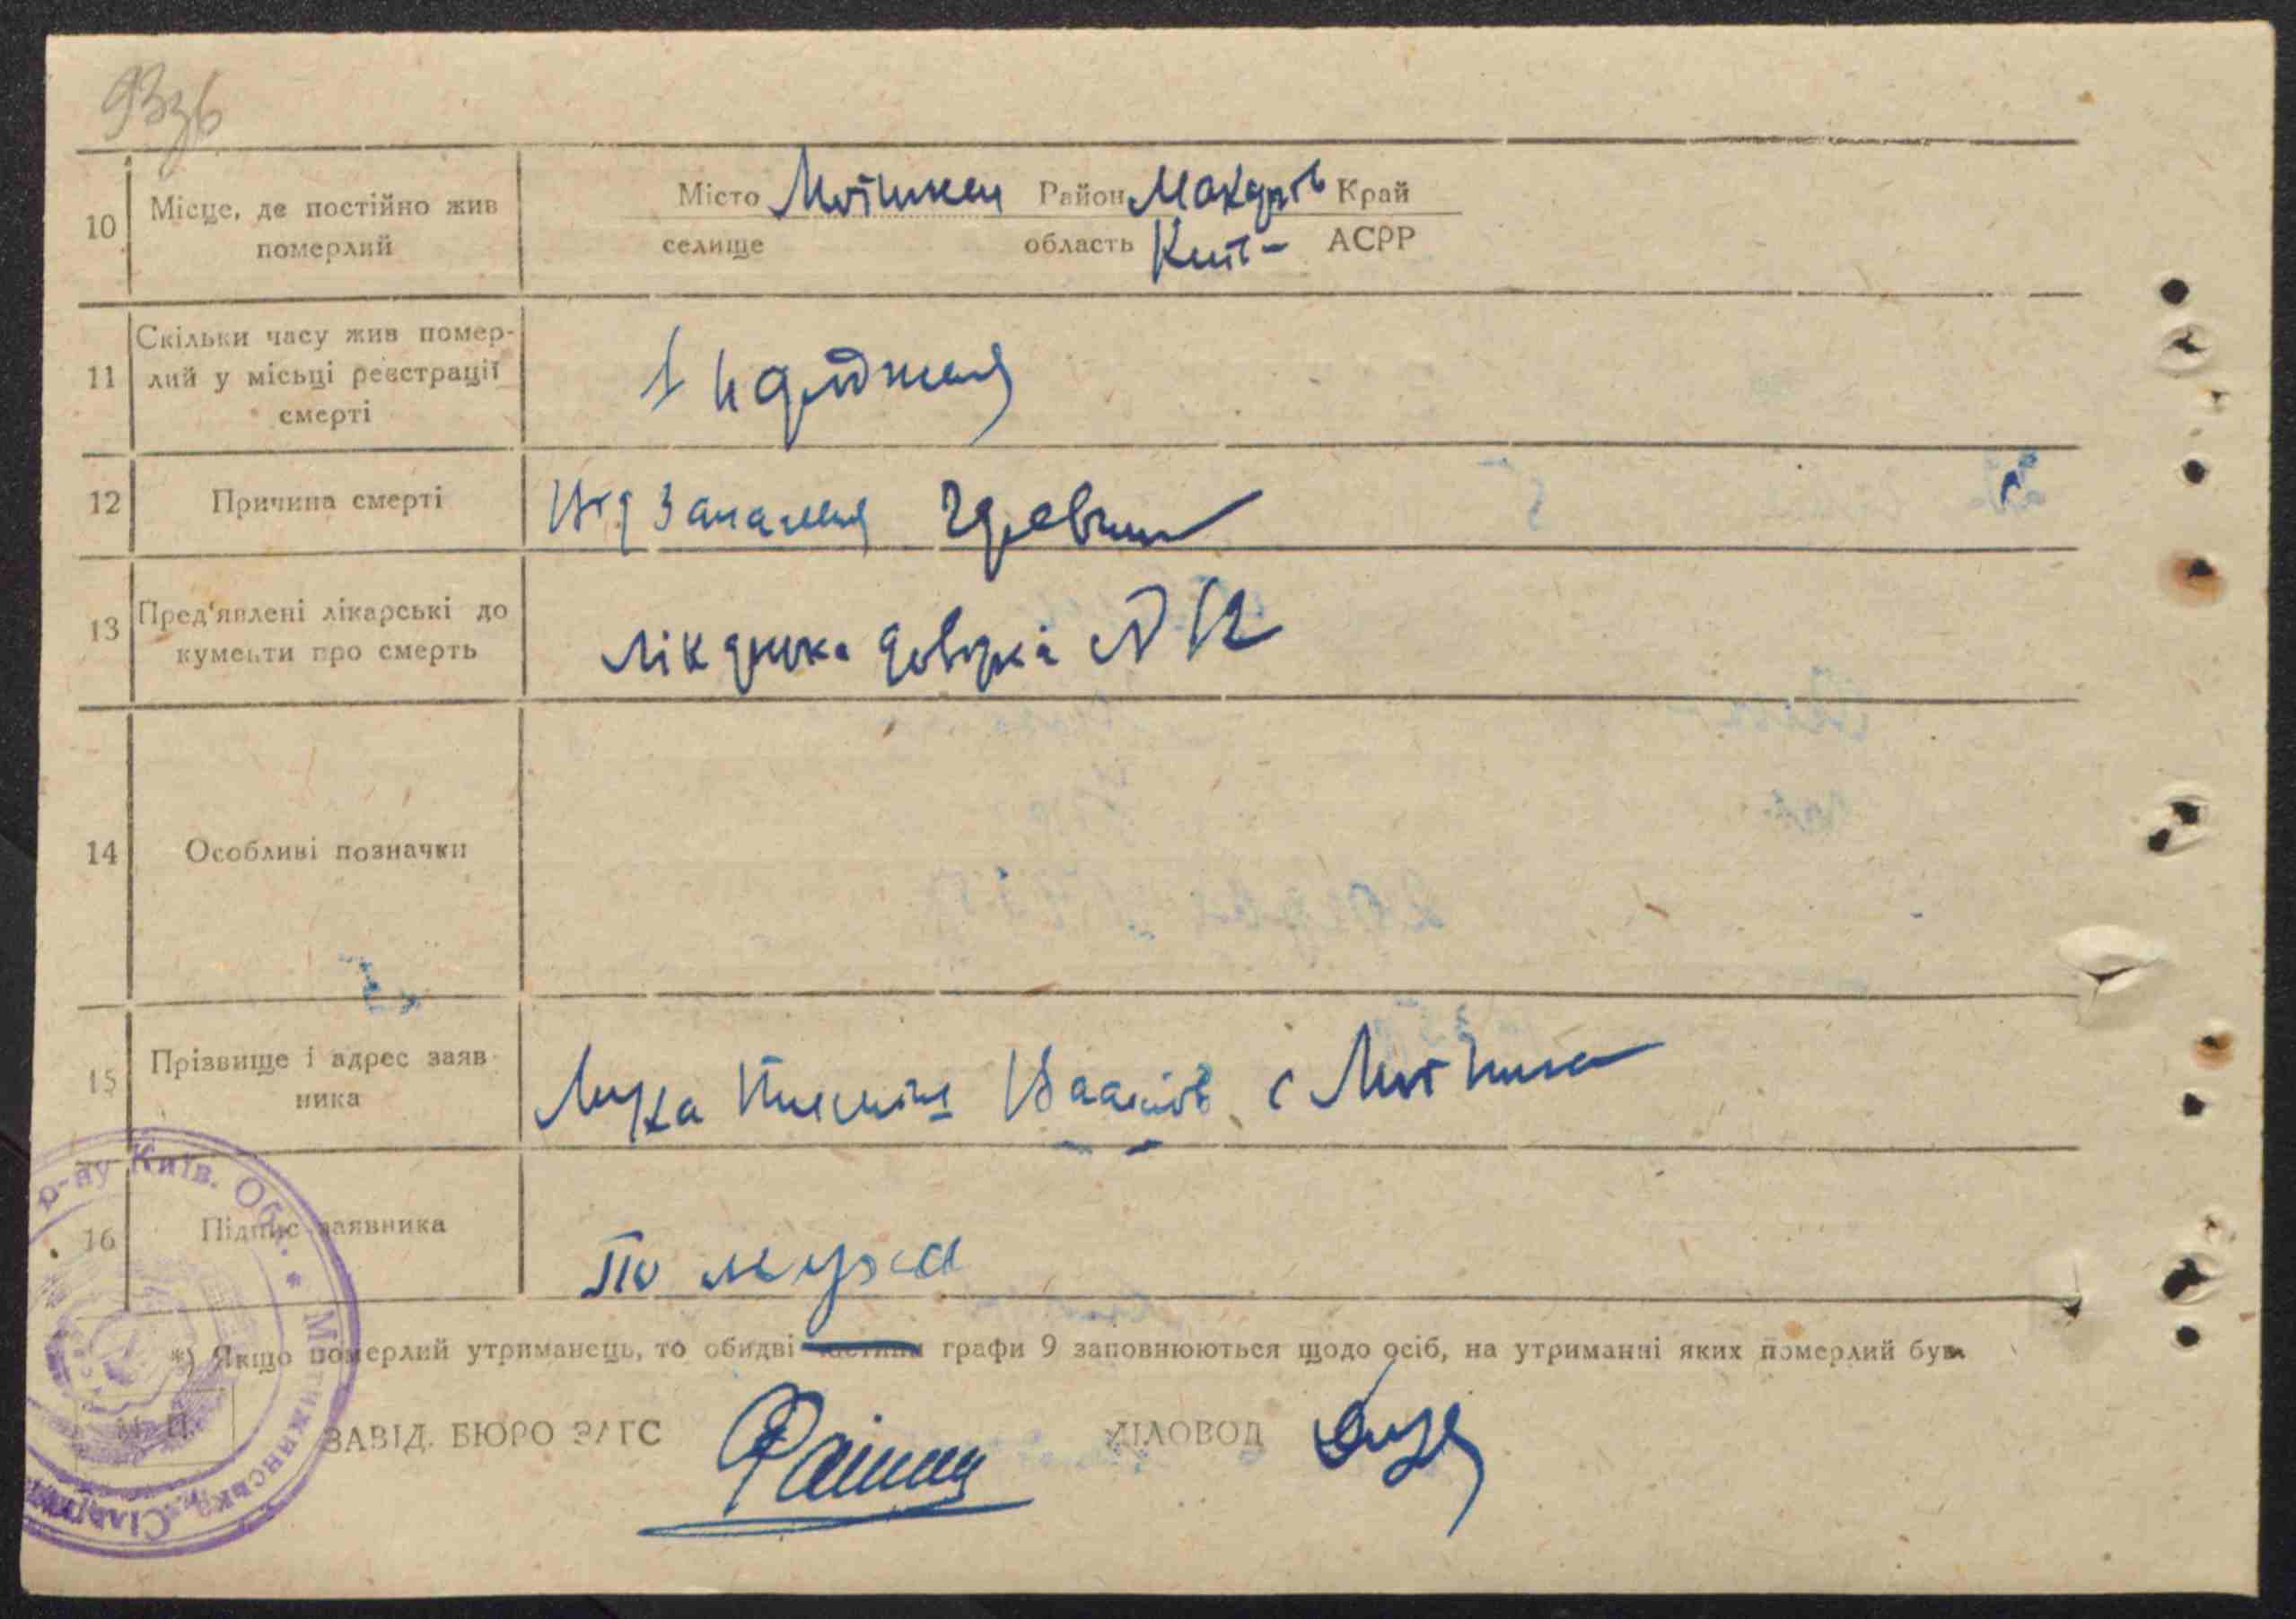 933б
10 Місце, де постійно жив померлий
Місто Мотижин Район Макарів Край
селище область Київ- АСРР
11 Скільки часу жив помер-
лий у місьці реєстрації
смерті
З народження
12 Причина смерті Від Запалення
13 Пред'явлені лікарські до
кументи про смерть
Лікарска довідка № 12
14 Особливі позначки
15 Прізвище і адрес заяв-
ника
с Мотижин
16 Підпис заявника
*) Якщо померлий утриманець, то обидві частини графи 9 заповнюються щодо осіб, на утриманні яких померлий був.
М. П.
ЗАВІД. БЮРО ЗАГС ДІЛОВОД
р-ну Київ. Обл. * Мотижинська Сільрада